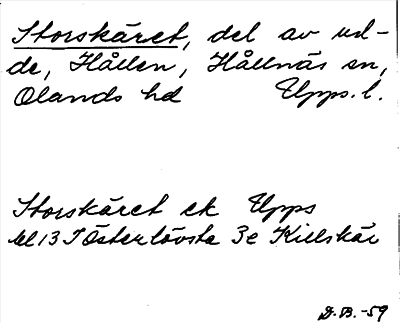 Storskäret, del av ud-
de, Hållen, Hållnäs sn,
Olands hd Upps. l.
Storskäret ek Upps
bl 13 I Österlövsta 3e Killskär
D.B.-59